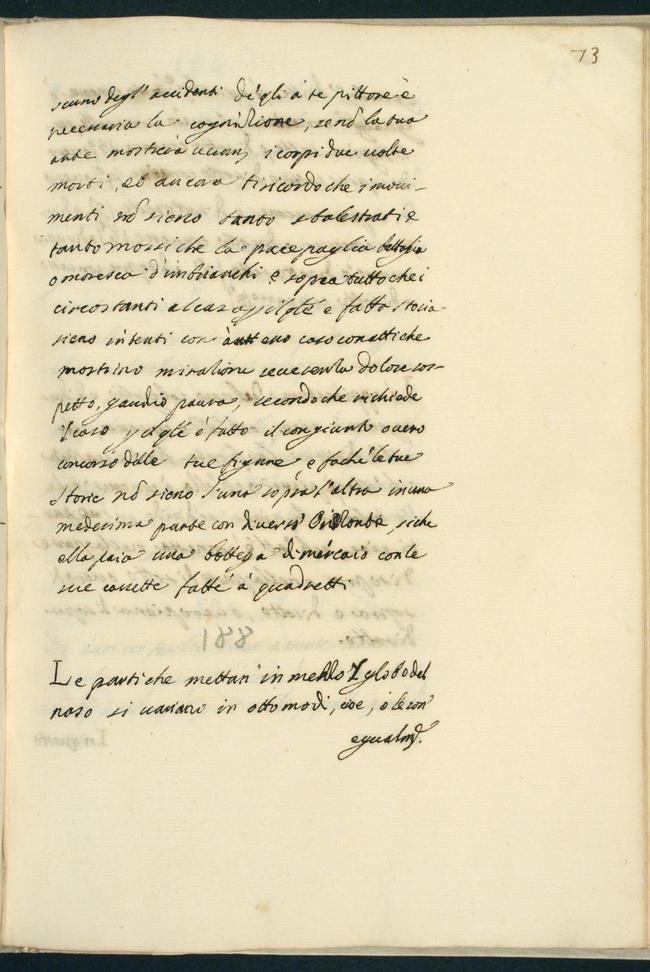 73
scuno degl'accidenti de gli à te pittore è
necessaria la cognizione, se nõ la tua
arte mostrerà i corpi due uolte
morti, et ancora ti ricordo che i moui-
menti nõ sieno tanto sbalestrati e
tanto mossi che la pace paglia battaglia
o moresca d'imbriachi e sopra tutto che i
circostanti al caso è fatto storia
sieno intenti con caso con atti che
mostrino miratione reuerentia dolore sos-
petto, gaudio paura, secondo che richiede
'l caso è fatto il congiunto ouero
concorso delle tue figure, e fa che le tue
storie nõ sieno l'una sopra l'altra in una
medesima parte con diuersi si che
ella paia una bottega di merciaio con le
sue cassette fatte à quadretti
Le parti che mettan' in mezzo 'l globo del
naso si uariano in otto modi, cioe, ò le son'
egualmẽ.